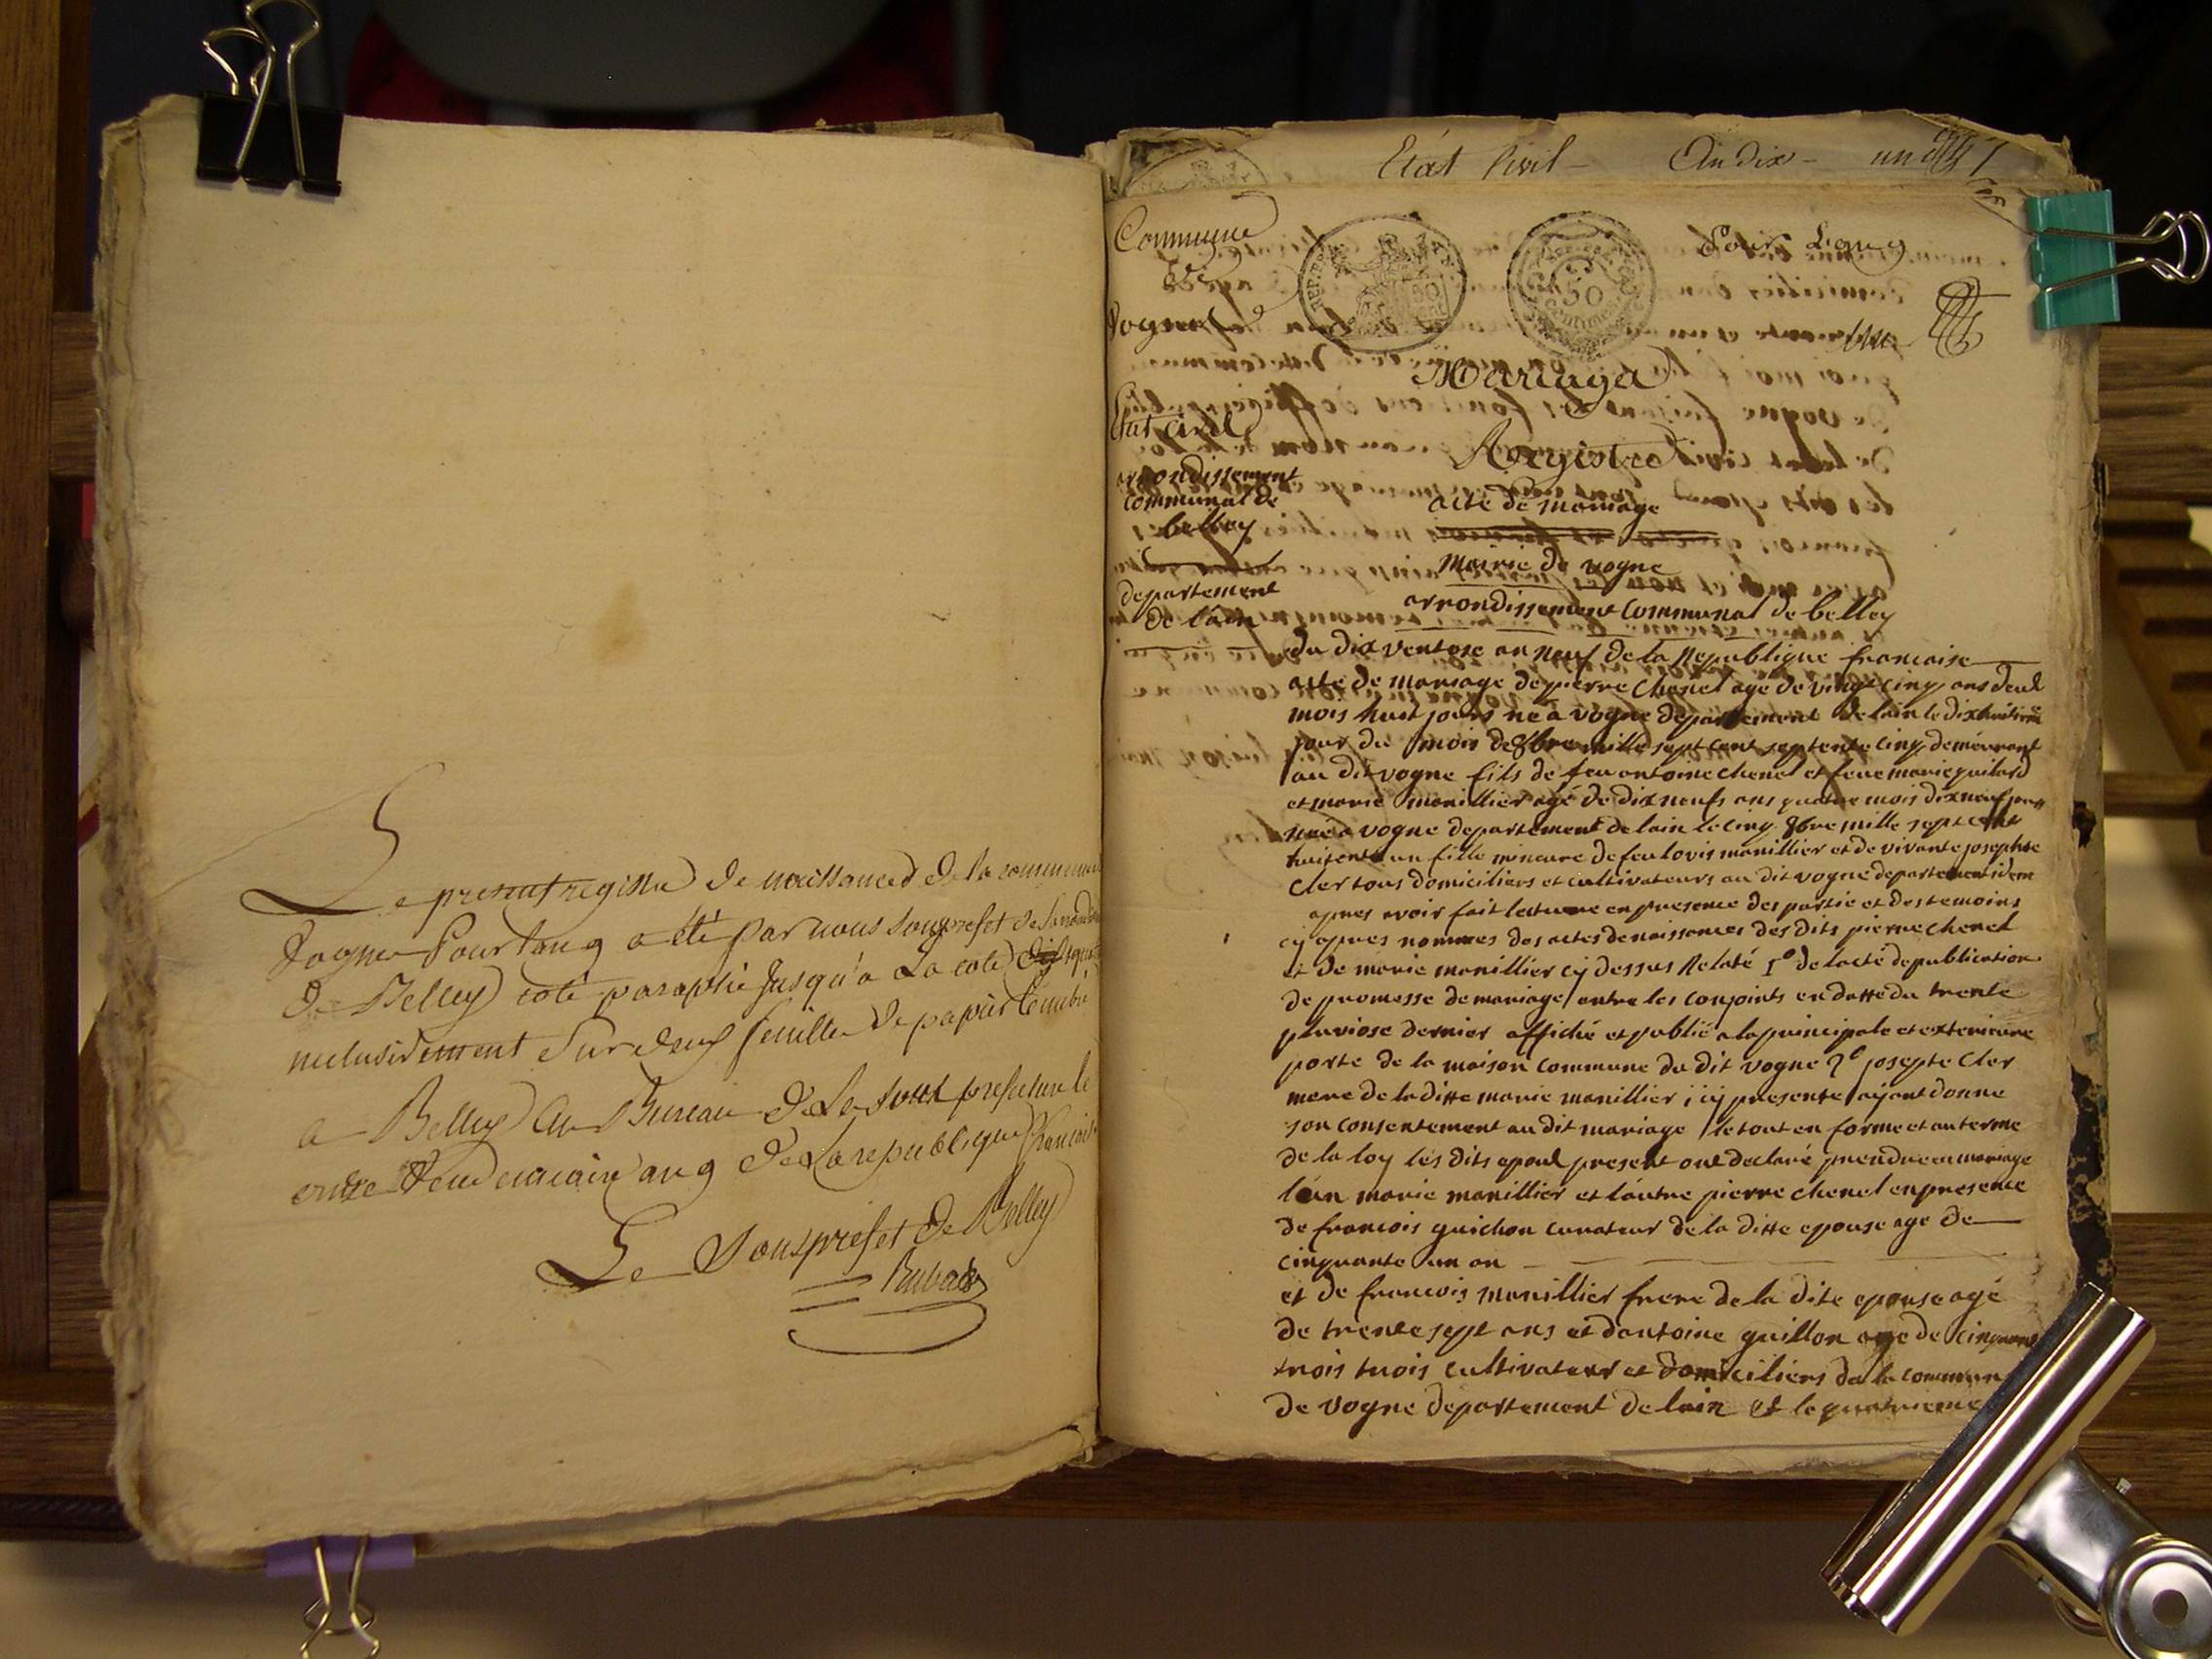 Le present registre de naissances de la commune
Vognes Pour l'an 9 a été par nous Sousprefet de l'arrondis
De Belley coté paraphé jusqu'a la cote
inclusivement Sur deux feuilles de papier timbré
a Belley au Bureau de la sous prefecture le
onze Vendemiaire an 9 de la republique francaise
Le Sousprefet de Belley
Etat Civil – An dix – un
Commune
de
Vognes
Pour L'an 9
50
50
Centimes
un
Mariages
Etat Civil
Registre
arrondissement
communal de
belley
acte de mariage
mairie de vogne
departement
de lain
arrondissement Communal de belley
du dix ventose an neuf de la Republique francaise
acte de mariage de pierre Chenel age de vingt cinq ans deux
mois huit jours né a vogne departement de lain le dixhuitieme
jour du mois de 8bre mille sept cent septente cinq demeurant
au dit vogne fils de feu antoine chenel et feue marie guilard
et marie manillier agé de dix neufs ans quatre mois dix neuf jours
née a vogne departement de lain le cinq 8bre mille sept cent
huitente un fille mineure de feu lovis manillier et de vivante josephte
Cler tous domiciliers et cultivateurs au dit vogne departement idem
apres avoir fait lecture en presence des partie et des temoins
cy apres nommes des actes de naissances des dits pierre chenel
et de marie manillier cy dessus Relaté 1º de lacte de publication
de promesse de mariage entre les conjoints en datte du trente
pluviose dernier affiché et publié a la principale et exterieure
porte de la maison commune du dit vogne 2º josepte Cler
mere de la ditte marie manillier icy presente ajant donne
son consentement au dit mariage le tout en forme et au terme
de la loy les dits epoux present ont declaré prendre en mariage
lun marie manillier et lautre pierre chenel en presence
de francois guichon curateur de la ditte epouse age de
cinquante un an
et de francois manillier frere de la dite epouse agé
de trente sept ans et dantoine guillon age de cinquante
trois trois cultivateur et domiciliers de la commune
de vogne departement de lain et le quatrieme